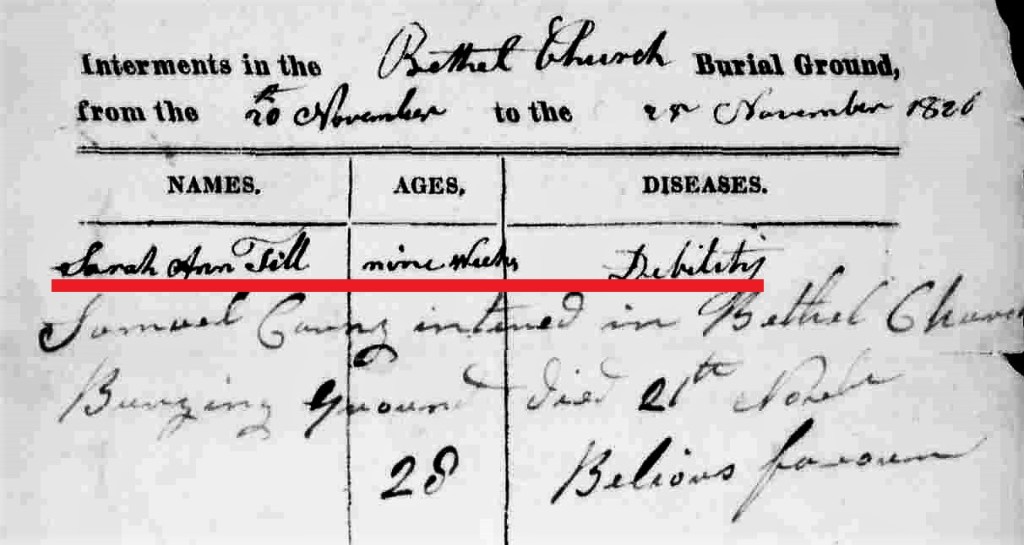 Interments in the Bethel Church Burial Ground,
from the 20th November to the 28 November 1826
NAMES. AGES. DISEASES.
Sarah Ann Till nine Weeks Debility
Samuel intered in Bethel Church
Burying Ground died 21th Novbr
28 Belious